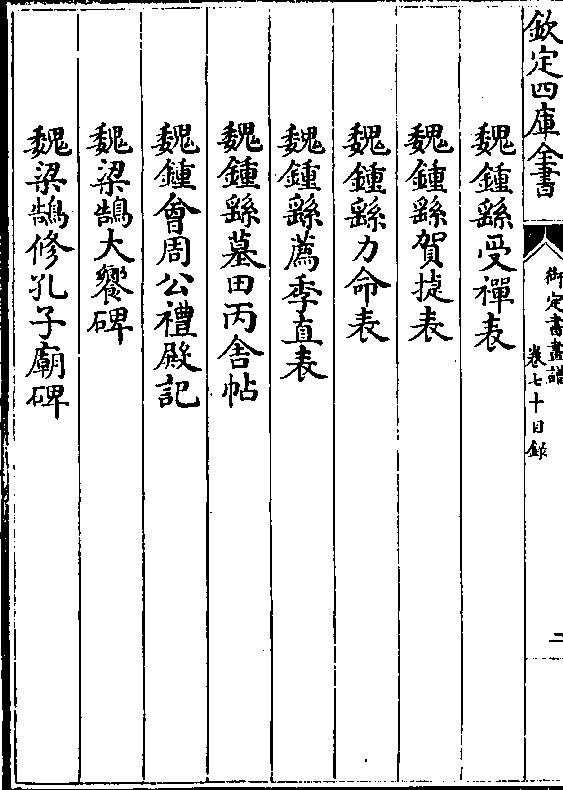 欽定四庫全書
御定書畫譜
卷七十目錄
二
魏鍾繇受禪表
魏鍾繇賀捷表
魏鍾繇力命表
魏鍾繇薦季直表
魏鍾繇墓田丙舍帖
魏鍾會周公禮殿記
魏梁鵠大饗碑
魏梁鵠修孔子廟碑